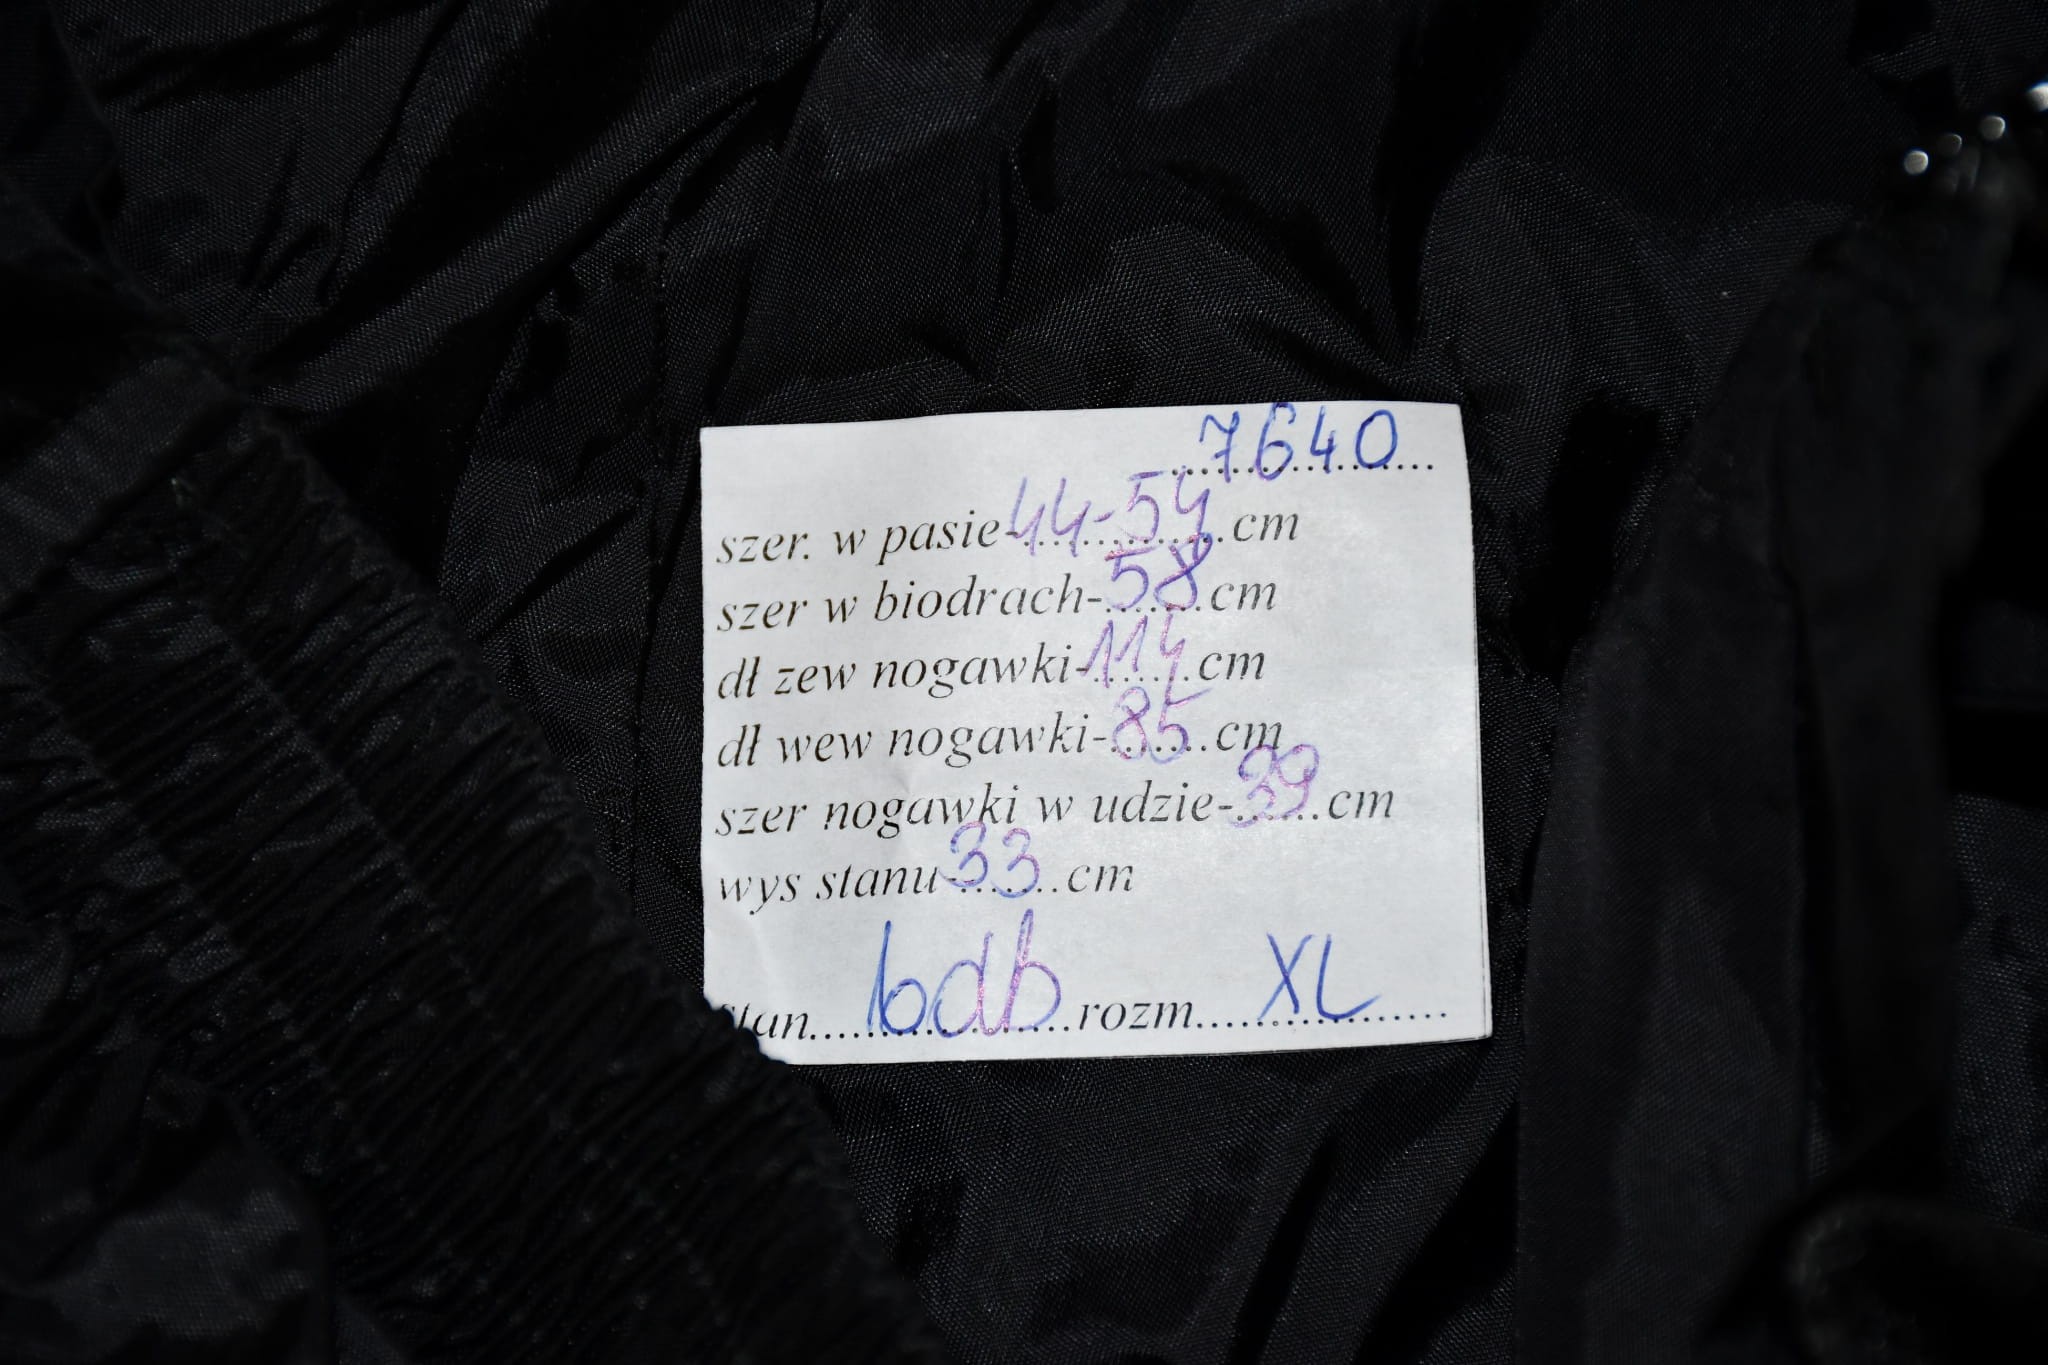 7640
szer. w pasie-44-54 cm
szer w biodrach-58 cm
dł zew nogawki-114 cm
dł wew nogawki-85 cm
szer nogawki w udzie-39 cm
wys stanu-33 cm
stan....bdb....rozm....XL....